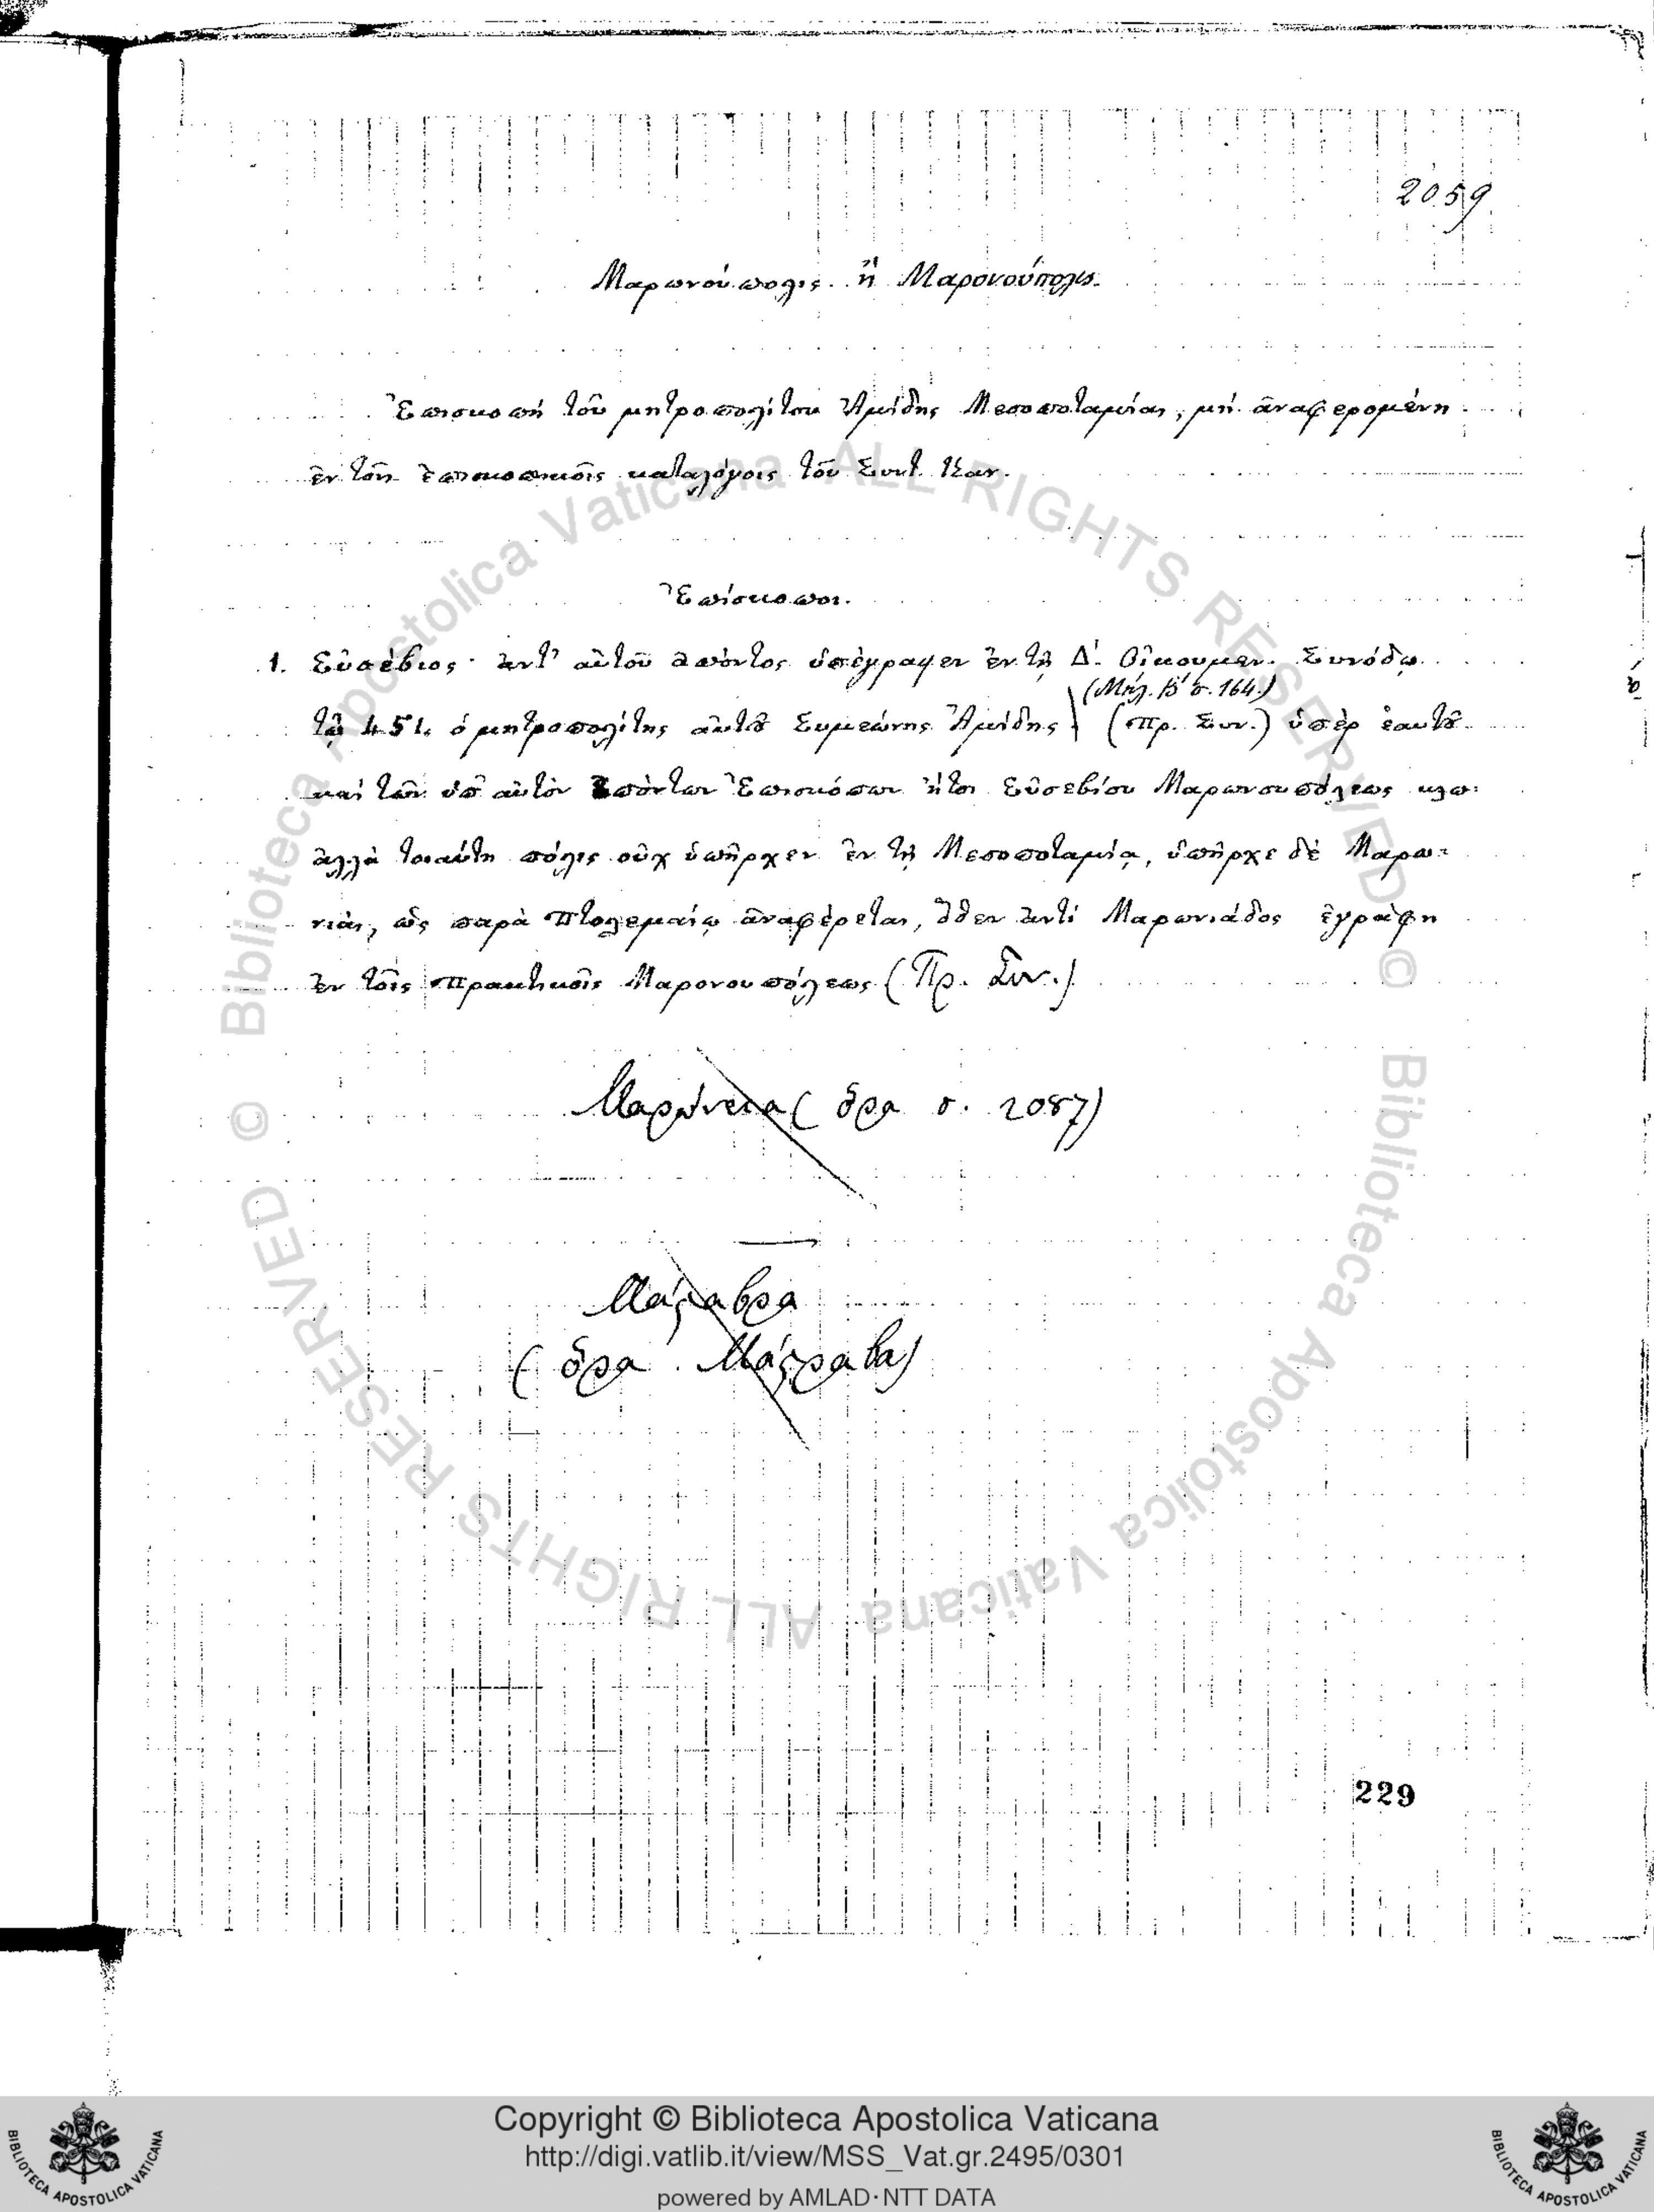 2059
Μαρωνούπολις ἢ Μαρονούπολις.
Ἐπισκοπή τοῦ μητροπολίτου Ἀμίδης Μεσοποταμίας, μή ἀναφερομένη
ἐν τοῖς ἐπισκοπικοῖς καταλόγοις τοῦ Συντ. Καν.
Ἐπίσκοποι.
1. Εὐσέβιος· ἀντ' αὐτοῦ ἀπόντος ὑπέγραψεν ἐν τῇ Δ'. Οἰκουμεν. Συνόδῳ
(Μηλ. Β' σ. 164.)
τῷ 451. ὁ μητροπολίτης αὐτοῦ Συμεώνης Ἀμίδης (Πρ. Συν.) ὑπὲρ ἑαυτοῦ
καί τῶν ὑπ' αὐτὸν ἀπόντων Ἐπισκόπων ἤτοι Εὐσεβίου Μαρωνουπόλεως κλπ.
ἀλλὰ τοιαύτη πόλις οὐχ ὑπῆρχεν ἐν τῇ Μεσοποταμίᾳ, ὑπῆρχε δὲ Μαρω-
νιάς, ὡς παρὰ Πτολεμαίῳ ἀναφέρεται, ὅθεν ἀντί Μαρωνιάδος ἐγράφη
ἐν τοῖς πρακτικοῖς Μαρονουπόλεως (Πρ. Συν.)
Μαρώνεια (ὅρα σ. 2087)
(ὅρα
229
Copyright © Biblioteca Apostolica Vaticana
http://digi.vatlib.it/view/MSS_Vat.gr.2495/0301
powered by AMLAD·NTT DATA
BIBLIOTECA APOSTOLICA VATICANA
BIBLIOTECA APOSTOLICA VATICANA
© Biblioteca Apostolica Vaticana ALL RIGHTS RESERVED
© Biblioteca Apostolica Vaticana ALL RIGHTS RESERVED